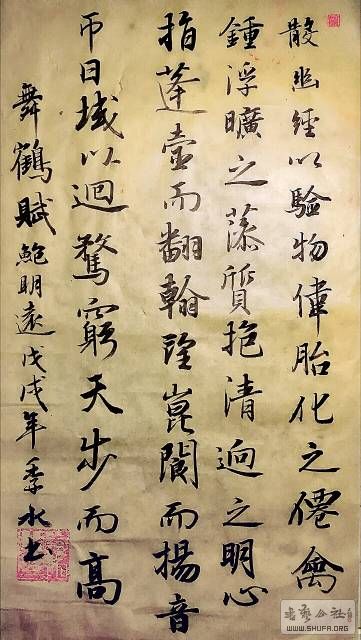 散幽經以驗物偉胎化之僊禽
鍾浮曠之藻質抱清迥之明心
指蓬壺而翻翰望崑閬而揚音
帀日域以迴騖窮天步而高
舞鶴賦鮑明遠戊戌年季水书
WWW.SHUFA.ORG